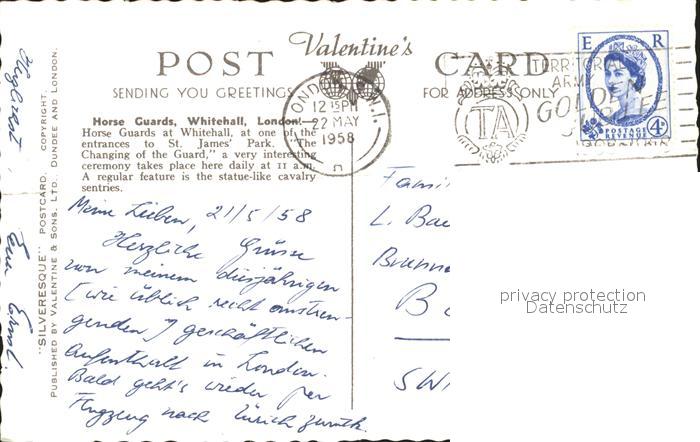 Valentine's
POST CARD
SENDING YOU GREETINGS
FOR ADDRESS ONLY
Horse Guards, Whitehall, London.—
Horse Guards at Whitehall, at one of the
entrances to St. James' Park. "The
Changing of the Guard," a very interesting
ceremony takes place here daily at 11 a.m.
A regular feature is the statue-like cavalry
sentries.
"SILVERESQUE" POSTCARD. COPYRIGHT.
PUBLISHED BY VALENTINE & SONS, LTD., DUNDEE AND LONDON.
LONDON N.1.
12 15PM
22 MAY
1958
TERRITORIAL
ARMY
GOLDEN
TA
E R
POSTAGE
REVENUE
4D
Meine Lieben, 21/5/58
Herzliche Grüsse
von meinem diesjährigen
[wie üblich recht anstren-
genden] geschäftlichen
Aufenthalt in London.
Bald geht's wieder per
Flugzeug nach Zürich zurück.
Euer
Fami
L. Bac
Brunn
B
SWI
privacy protection
Datenschutz